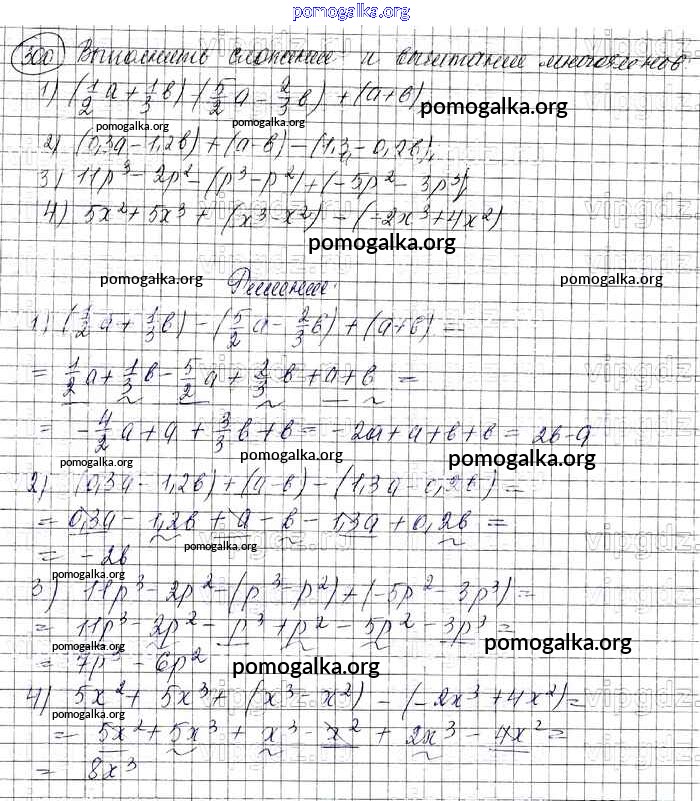 pomogalka.org
300 Выполнить сложение и вычитание многочленов
1) (1/2 a + 1/3 в) - (5/2 a - 2/3 в) + (a + в)
pomogalka.org
pomogalka.org pomogalka.org
2) (0,3a - 1,2в) + (a - в) - (1,3 - 0,2в);
3) 11p³ - 2p² - (p³ - p²) + (-5p² - 3p³)
4) 5x² + 5x³ + (x³ - x²) - (-2x³ + 4x²)
pomogalka.org
pomogalka.org Решение: pomogalka.org
1) (1/2 a + 1/3 в) - (5/2 a - 2/3 в) + (a + в) =
= 1/2 a + 1/3 в - 5/2 a + 2/3 в + a + в =
= -4/2 a + a + 3/3 в + в = -2a + a + в + в = 2в - a
pomogalka.org pomogalka.org pomogalka.org
2) (0,3a - 1,2в) + (a - в) - (1,3a - 0,2в) =
= 0,3a - 1,2в + a - в - 1,3a + 0,2в =
pomogalka.org
= -2в
pomogalka.org
3) 11p³ - 2p² - (p³ - p²) + (-5p² - 3p³) =
= 11p³ - 2p² - p³ + p² - 5p² - 3p³ =
pomogalka.org pomogalka.org
= 7p³ - 6p²
pomogalka.org
4) 5x² + 5x³ + (x³ - x²) - (-2x³ + 4x²) =
pomogalka.org
= 5x² + 5x³ + x³ - x² + 2x³ - 4x² =
= 8x³